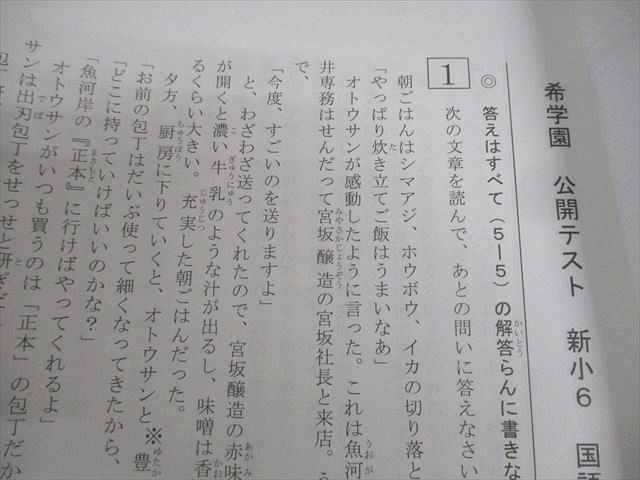 希学園 公開テスト 新小6 国語
◎ 答えはすべて(5―5)の解答らんに書きな
1 次の文章を読んで、あとの問いに答えなさい
朝ごはんはシマアジ、ホウボウ、イカの切り落と
「やっぱり炊き立てご飯はうまいなあ」
オトウサンが感動したように言った。これは魚河
井専務はせんだって宮坂醸造の宮坂社長と来店。
で、
「今度、すごいのを送りますよ」
と、わざわざ送ってくれたので、宮坂醸造の赤味
が開くと濃い牛乳のような汁が出るし、味噌は香
るくらい大きい。充実した朝ごはんだった。
夕方、厨房に下りていくと、オトウサンと※豊
「お前の包丁はだいぶ使って細くなってきたから、
「どこに持っていけばいいのかな?」
「魚河岸の『正本』に行けばやってくれるよ」
オトウサンがいつも買うのは「正本」の包丁だか
サンは出刃包丁をせっせと研ぎ